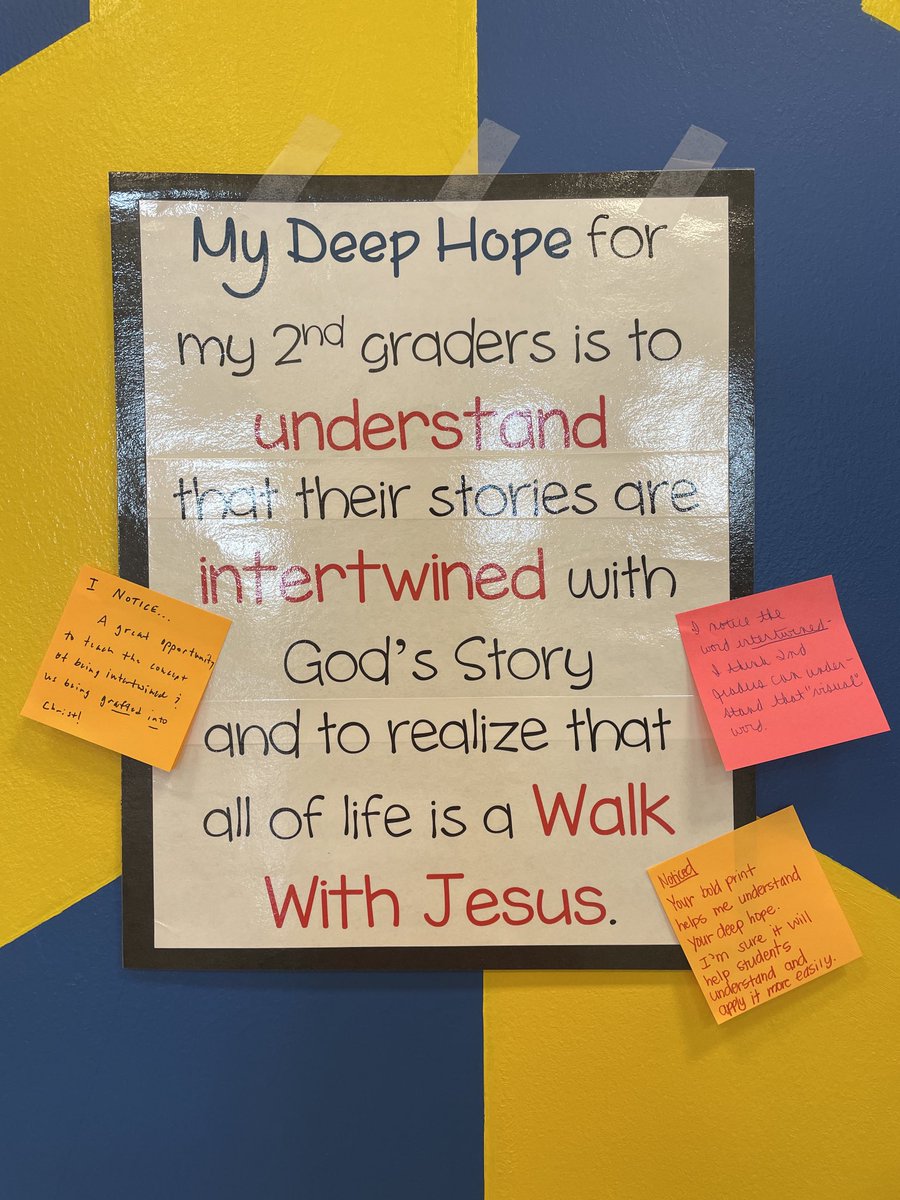 My Deep Hope for
my 2nd graders is to
understand
that their stories are
intertwined with
God's Story
and to realize that
all of life is a Walk
With Jesus.
I NOTICE...
A great opportunity
to teach the concept
of being intertwined &
us being grafted into
Christ!
I notice the
word intertwined-
I think 2nd
graders can under-
stand that "visual"
word.
Noticed
Your bold print
helps me understand
Your deep hope.
I'm sure it will
help students
understand and
apply it more easily.